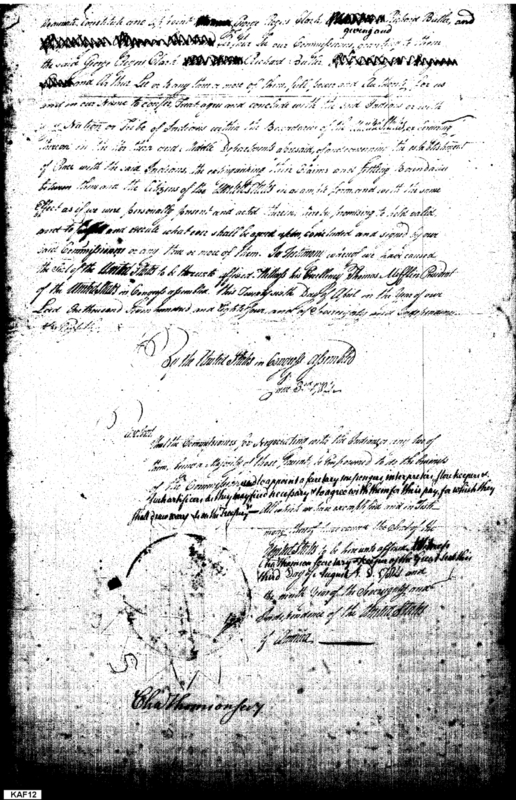 nominate, constitute and appoint George Rogers Clark Richard Butler, and
giving and
Lee our Commissioners, granting to them
the said George Rogers Clark Richard Butler
and Arthur Lee or to any two or more of them, full power and Authority, for us
and in our Name to confer Treat agree and conclude with the said Indians or with
any Nation or Tribe of Indians within the Boundaries of the United States, or bordering
thereon in the Northern and Middle Departments aforesaid, of and concerning the establishment
of Peace with the said Indians, the extinguishing their Claims and settling Boundaries
between them and the Citizens of the United States in as ample form and with the same
Effect as if we were personally present and acted therein, hereby promising to hold valid
and to fulfil and execute what ever shall be agreed upon concluded and signed by our
said Commissioners or any two or more of them. In Testimony whereof we have caused
the Seal of the United States to be hereunto affixed Witness his Excellency Thomas Mifflin President
of the United States in Congress assembled this Day of April in the Year of our
Lord One thousand Seven hundred and Eighty four, and of Sovereignty and Independence
the Eighth
By the United States in Congress assembled
June 3rd 1784
Resolved
That the Commissioners for negociating with the Indians or any two of
them, be empowered to do the business
of the Commission and to appoint a secretary messengers, interpreter, store keepers &
such artificers as they may find necessary & to agree with them for their pay, for which they
shall draw money on the treasury All which we have exemplified and in Testi
mony thereof have caused the Seal of the
United States to be hereunto affixed. Witness
Cha Thomson Secretary & keeper of the Great Seal this
third Day of August A. D. 1785 and
the ninth Year of the Sovereignty and
Independence of the United States
of America
Cha Thomson Secy
KAF12